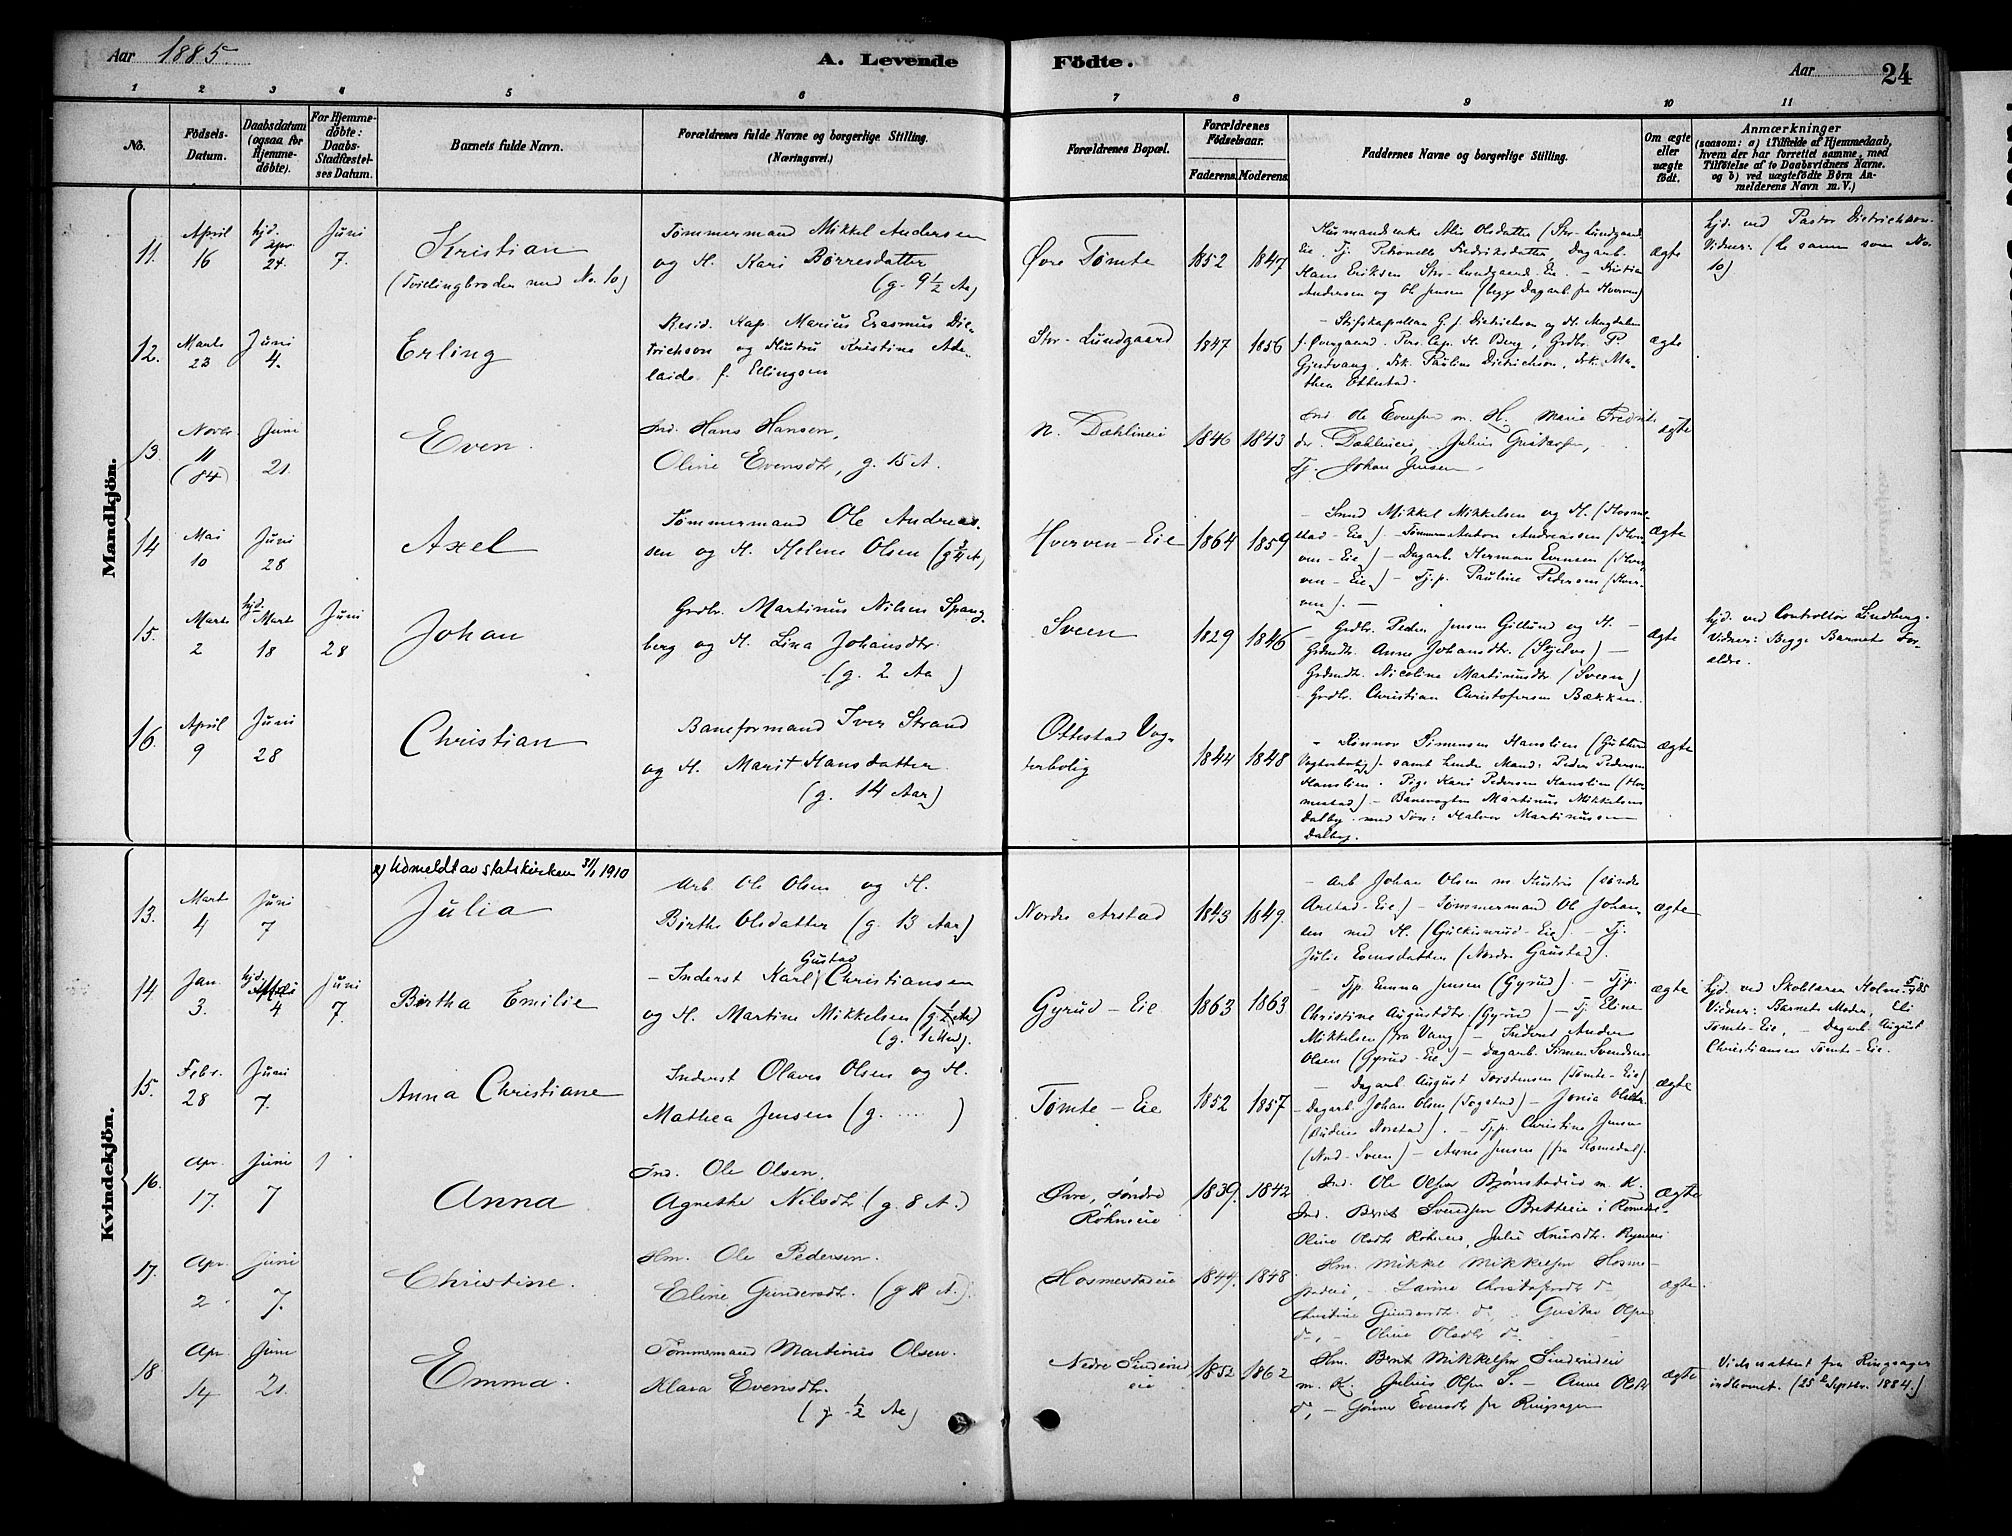 Aar 1885.
A. Levende Födte.
Aar 24
1 2 3 4 5 6 7 8 9 10 11
No.
Födsels-Datum.
Daabsdatum (ogsaa for Hjemme-döbte).
For Hjemme-döbte: Daabs-Stadfæstel-ses Datum.
Barnets fulde Navn.
Forældrenes fulde Navne og borgerlige Stilling. (Næringsvei.)
Forældrenes Bopæl.
Forældrenes Födselsaar.
Faderens. Moderens.
Faddernes Navne og borgerlige Stilling.
Om ægte eller uægte födt.
Anmærkninger
(saasom: a) i Tilfælde af Hjemmedaab, hvem der har forrettet samme, med Tilföielse af to Daabsvidners Navne. og b) ved uægtefödte Börn An-melderens Navn m. V.)
Mandkjön.
11. April 16 hjd. Apr. 24. Juni 7.
Kristian
(Tvillingbroder med No. 10)
Tømmermand Mikkel Andersen
og H. Kari Børresdatter
(g. 9 1/2 Aa)
Øvre Tømte 1852 1847
Husmandsenke Olsdatter (Str-Lundgaard
Eie, Tj. Petronelle Fredriksdatter, Dagarb.
Hans Eriksen Str-Lundgaard-Eie. - Kristian
Andersen og Ole Jensen (begge Dagarb. fra Hverven)
ægte
hjd. ved Pastor Dietrichson.
Vidner: (de samme som No.
10)
12. Marts 23 Juni 4.
Erling
Resid. Kap. Marius Erasmus Die-
trichson og Hustru Kristine Ade-
laide f. Ellingsen
Str-Lundgaard 1847 1856
- Stiftskapellan G. J. Dietrichson og H. Magdalena
f. Overgaard. Pers. Cap. H. Berg, Grdbr. P.
Gjestvang, Frk. Pauline Dietrichson, Frk. Ma-
thea Ottestad.
ægte
13. Novbr. 11 (84) Juni 21.
Even.
Ind. Hans Hansen,
Oline Evensdtr, g. 15 A.
N. Dæhlineie 1846 1843
Ind Ole Evensen m. H. Marie Fredriks
dr. Dæhlineie, Julius Gustavsen,
Tj. Johan Jensen.
ægte
14 Mai 10 Juni 28
Axel
Tømmermand Ole Andreas-
sen og H. Helene Olsen (g 3/4 A)
Hverven-Eie 1864 1859
- Smed Mikkel Mikkelsen og H. (Hosme-
stad-Eie) - Tømmerm Anton Andreassen (Hver-
ven-Eie) - Dagarb. Herman Evensen (Hver-
ven-Eie) - Tj.p. Pauline Pedersen (Hver-
ven). -
ægte
15. Marts 2 hjd. Marts 18 Juni 28
Johan
Grdbr. Martinus Nilsen Spang
berg og H. Lina Johansdtr.
(g. 2 Aa)
Sveen 1829 1846
- Grdbr. Peder Jensen Gillund og H. -
Grdmdtr. Anne Johansdtr. (Skjelve) -
Grdmdtr. Nicoline Martinusdtr (Sveen)
- Grdbr. Christian Christofersen Bækken.
ægte
hjd. ved Controllør Lindberg.
Vidner: Begge Barnets For-
ældre.
16. April 9 Juni 28
Christian
Baneformand Iver Strand
og H. Marit Hansdatter
(g. 14 Aar)
Ottestad Vog-
terbolig 1844 1848
- Rønnov Simensen Hanslien
Vogterbolig) samt hendes Mand: Peder Pedersen
Hanslien. Pige Kari Pedersen Hanslien (Hos-
mestad) - Banevogter Martinus Mikkelsen
Dalby med Søn: Halvor Martinussen
Dalby.
ægte
Kvindekjön.
x) Udmeldt av statskirken 31/1 1910
13. Marts 4 Juni 7
Julia
Arb. Ole Olsen og H.
Birthe Olsdatter (g. 13 Aar)
Nordre Arstad 1843 1849.
- Arb Johan Olsen m. Hustru (søndre
Arstad-Eie) - Tømmermand Ole Johan-
sen med H. (Gulkusrud-Eie). - Tj.
Julie Evensdatter (Nordre Gaustad).
ægte
14 Jan. 3. hjd. 4 Juni 7.
Birtha Emilie
- Inderst Karl Gustav Christiansen
og H. Martine Mikkelsen (g 1/2 Aa)
(g. 1 Md).
Gyrud-Eie 1863 1863
- Tjp. Emma Jensen (Gyrud). - Tj.p.
Christine Augustdtr. (Gyrud) - Tj Eline
Mikkelsen (fra Vang) - Inderst Anders
Olsen (Gyrud-Eie) - Dagarb. Simen Svendsen
ægte
hjd. ved Skolelærer Holm
Vidner: Barnets Moder, Eli
Tømte-Eie, - Dagarb. August
Christiansen Tømte-Eie.
15. Febr. 28 Juni 7.
Anna Christiane
Inderst Olaves Olsen og H.
Mathea Jensen (g. .... )
Tømte-Eie 1852 1857
- Dagarb. August Torstensen (Tømte-Eie)
- Dagarb. Johan Olsen (Fogstad) - Jonia Olsdtr.
. - Tj.p. Christine Jensen
(Nord-Sveen) - Anne Jensen (fra Romedal).
ægte
16. Apr. 17. Juni 7
Anna
Ind. Ole Olsen,
Agnethe Nilsdtr (g. 8 A.)
Øvre, søndre
Røhneeie 1839. 1842
Ind. Ole Olsen Bjørnstadeie m. K.
Ind. Bernt Svendsen Bretteeie i Romedal
Oline Olsdtr Røhneeie, Julie Knudsdtr.
ægte
17. Apr. 2 Juni 7.
Christine.
Hm. Ole Pedersen.
Eline Gundersdtr. (g 18 A).
Hosmestadeie 1844. 1848
Hm. Mikkel Mikkelsen Hosme-
stadeie, - Larine Christofersdtr do,
Christine Gundersdtr. do, Gustav Olsen
do, - Oline Olsdtr do.
ægte.
18 Apr. 14 Juni 21.
Emma.
Tømmermand Martinus Olsen.
Klara Evensdtr.
(g. 1/2 Aa)
Nedre Sinderud
eie 1852 1862
Hm. Bernt Mikkelsen Sinderudeie
m. K. Julius Olsen S. - Anne Olsdtr
do, - Gunner Evensdtr fra Ringsager
ægte
Vielsesattest fra Ringsager
indkommet. (25de Septbr. 1884.)